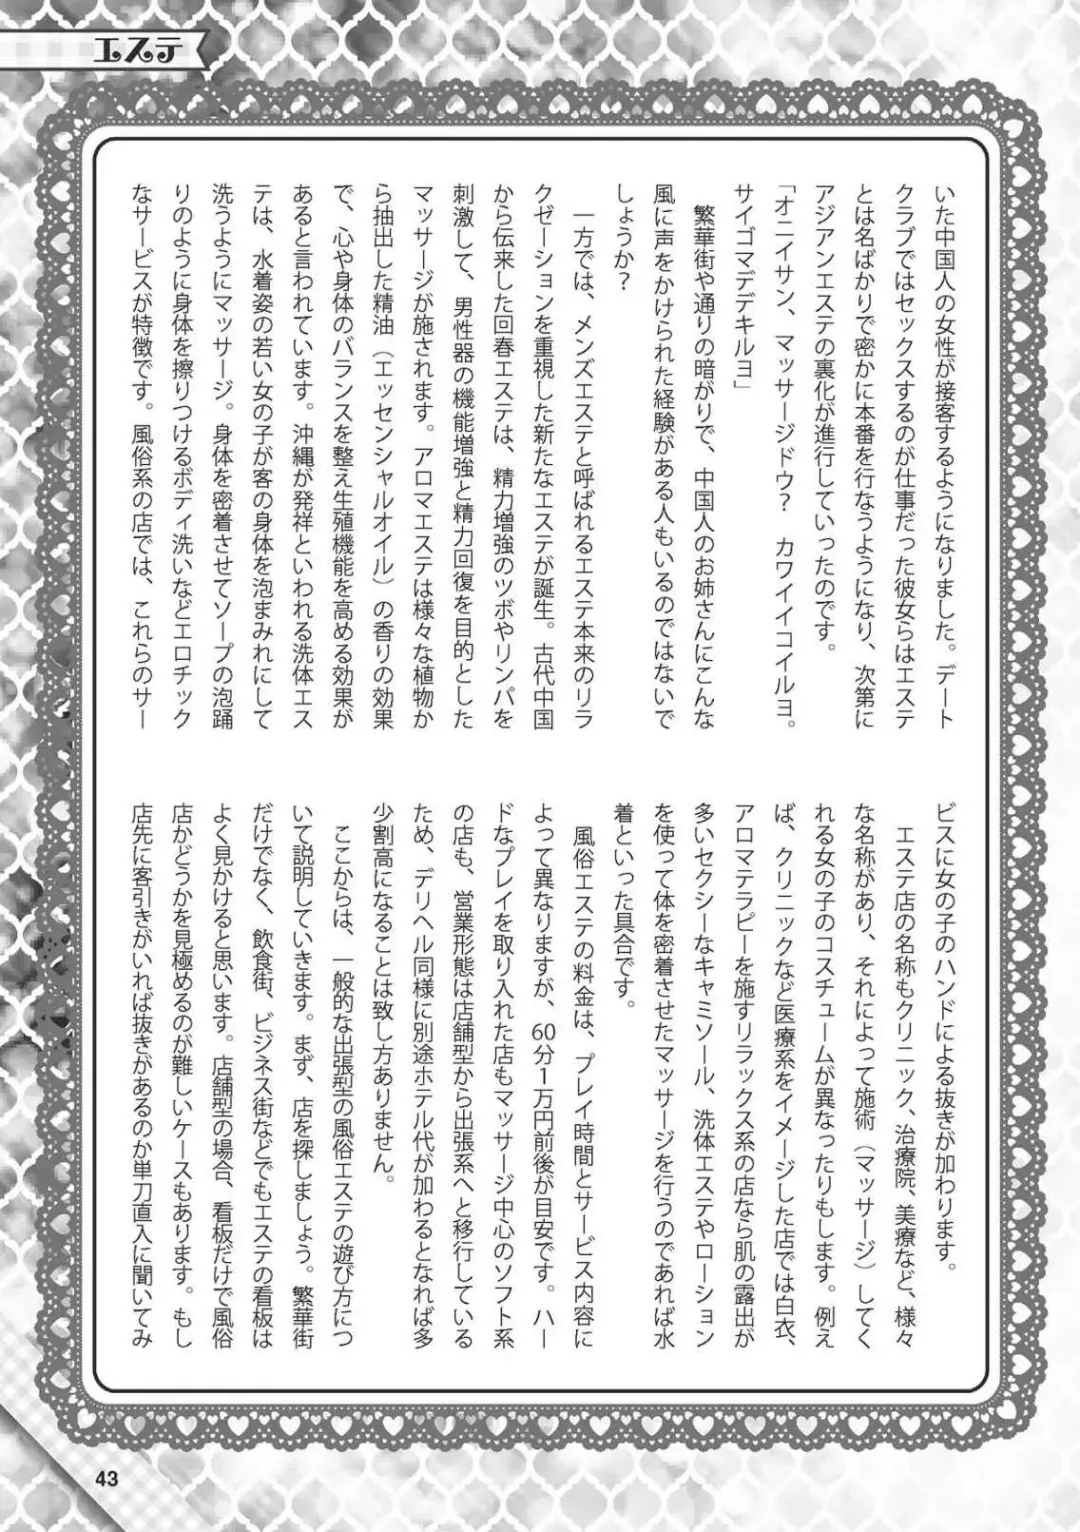 エステ
いた中国人の女性が接客するようになりました。デート
クラブではセックスするのが仕事だった彼女らはエステ
とは名ばかりで密かに本番を行なうようになり、次第に
アジアンエステの裏化が進行していったのです。
「オニイサン、マッサージドウ？　カワイイコイルヨ。
サイゴマデデキルヨ」
繁華街や通りの暗がりで、中国人のお姉さんにこんな
風に声をかけられた経験がある人もいるのではないで
しょうか？
一方では、メンズエステと呼ばれるエステ本来のリラ
クゼーションを重視した新たなエステが誕生。古代中国
から伝来した回春エステは、精力増強のツボやリンパを
刺激して、男性器の機能増強と精力回復を目的とした
マッサージが施されます。アロマエステは様々な植物か
ら抽出した精油（エッセンシャルオイル）の香りの効果
で、心や身体のバランスを整え生殖機能を高める効果が
あると言われています。沖縄が発祥といわれる洗体エス
テは、水着姿の若い女の子が客の身体を泡まみれにして
洗うようにマッサージ。身体を密着させてソープの泡踊
りのように身体を擦りつけるボディ洗いなどエロチック
なサービスが特徴です。風俗系の店では、これらのサー
ビスに女の子のハンドによる抜きが加わります。
エステ店の名称もクリニック、治療院、美療など、様々
な名称があり、それによって施術（マッサージ）してく
れる女の子のコスチュームが異なったりもします。例え
ば、クリニックなど医療系をイメージした店では白衣、
アロマテラピーを施すリラックス系の店なら肌の露出が
多いセクシーなキャミソール、洗体エステやローション
を使って体を密着させたマッサージを行うのであれば水
着といった具合です。
風俗エステの料金は、プレイ時間とサービス内容に
よって異なりますが、60分1万円前後が目安です。ハー
ドなプレイを取り入れた店もマッサージ中心のソフト系
の店も、営業形態は店舗型から出張系へと移行している
ため、デリヘル同様に別途ホテル代が加わるとなれば多
少割高になることは致し方ありません。
ここからは、一般的な出張型の風俗エステの遊び方につ
いて説明していきます。まず、店を探しましょう。繁華街
だけでなく、飲食街、ビジネス街などでもエステの看板は
よく見かけると思います。店舗型の場合、看板だけで風俗
店かどうかを見極めるのが難しいケースもあります。もし
店先に客引きがいれば抜きがあるのか単刀直入に聞いてみ
43